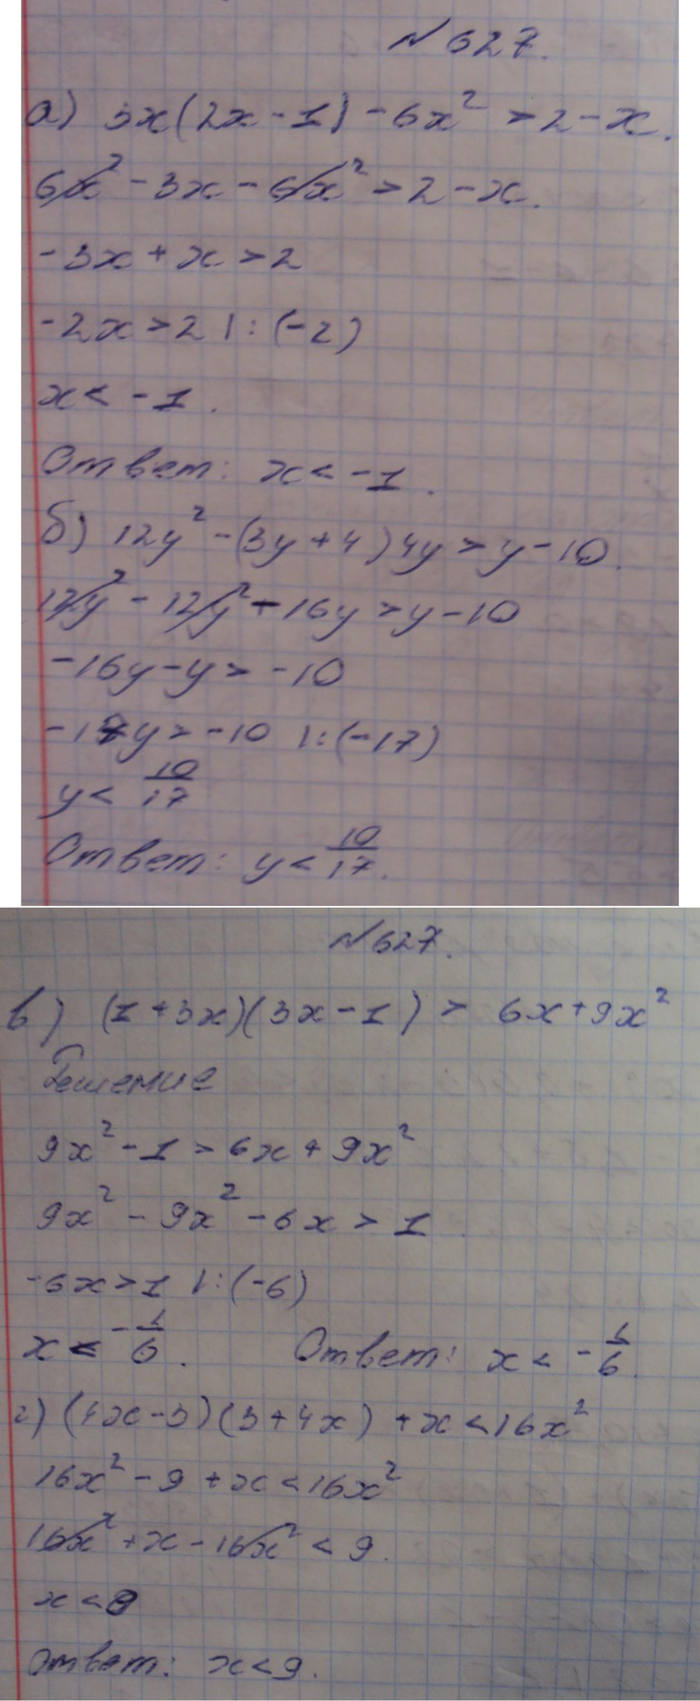 №627.
а) 3x(2x-1)-6x²>2-x.
6x²-3x-6x²>2-x.
-3x+x>2
-2x>2 |:(-2)
x<-1.
Ответ: x<-1.
б) 12y²-(3y+4)4y>y-10.
12y²-12y²-16y>y-10
-16y-y>-10
-17y>-10 |:(-17)
y<10/17
Ответ: y<10/17.
№627.
в) (1+3x)(3x-1)>6x+9x²
Решение
9x²-1>6x+9x²
9x²-9x²-6x>1
-6x>1 |:(-6)
x<-1/6. Ответ: x<-1/6.
г) (4x-3)(3+4x)+x<16x²
16x²-9+x<16x²
16x²+x-16x²<9.
x<9
Ответ: x<9.